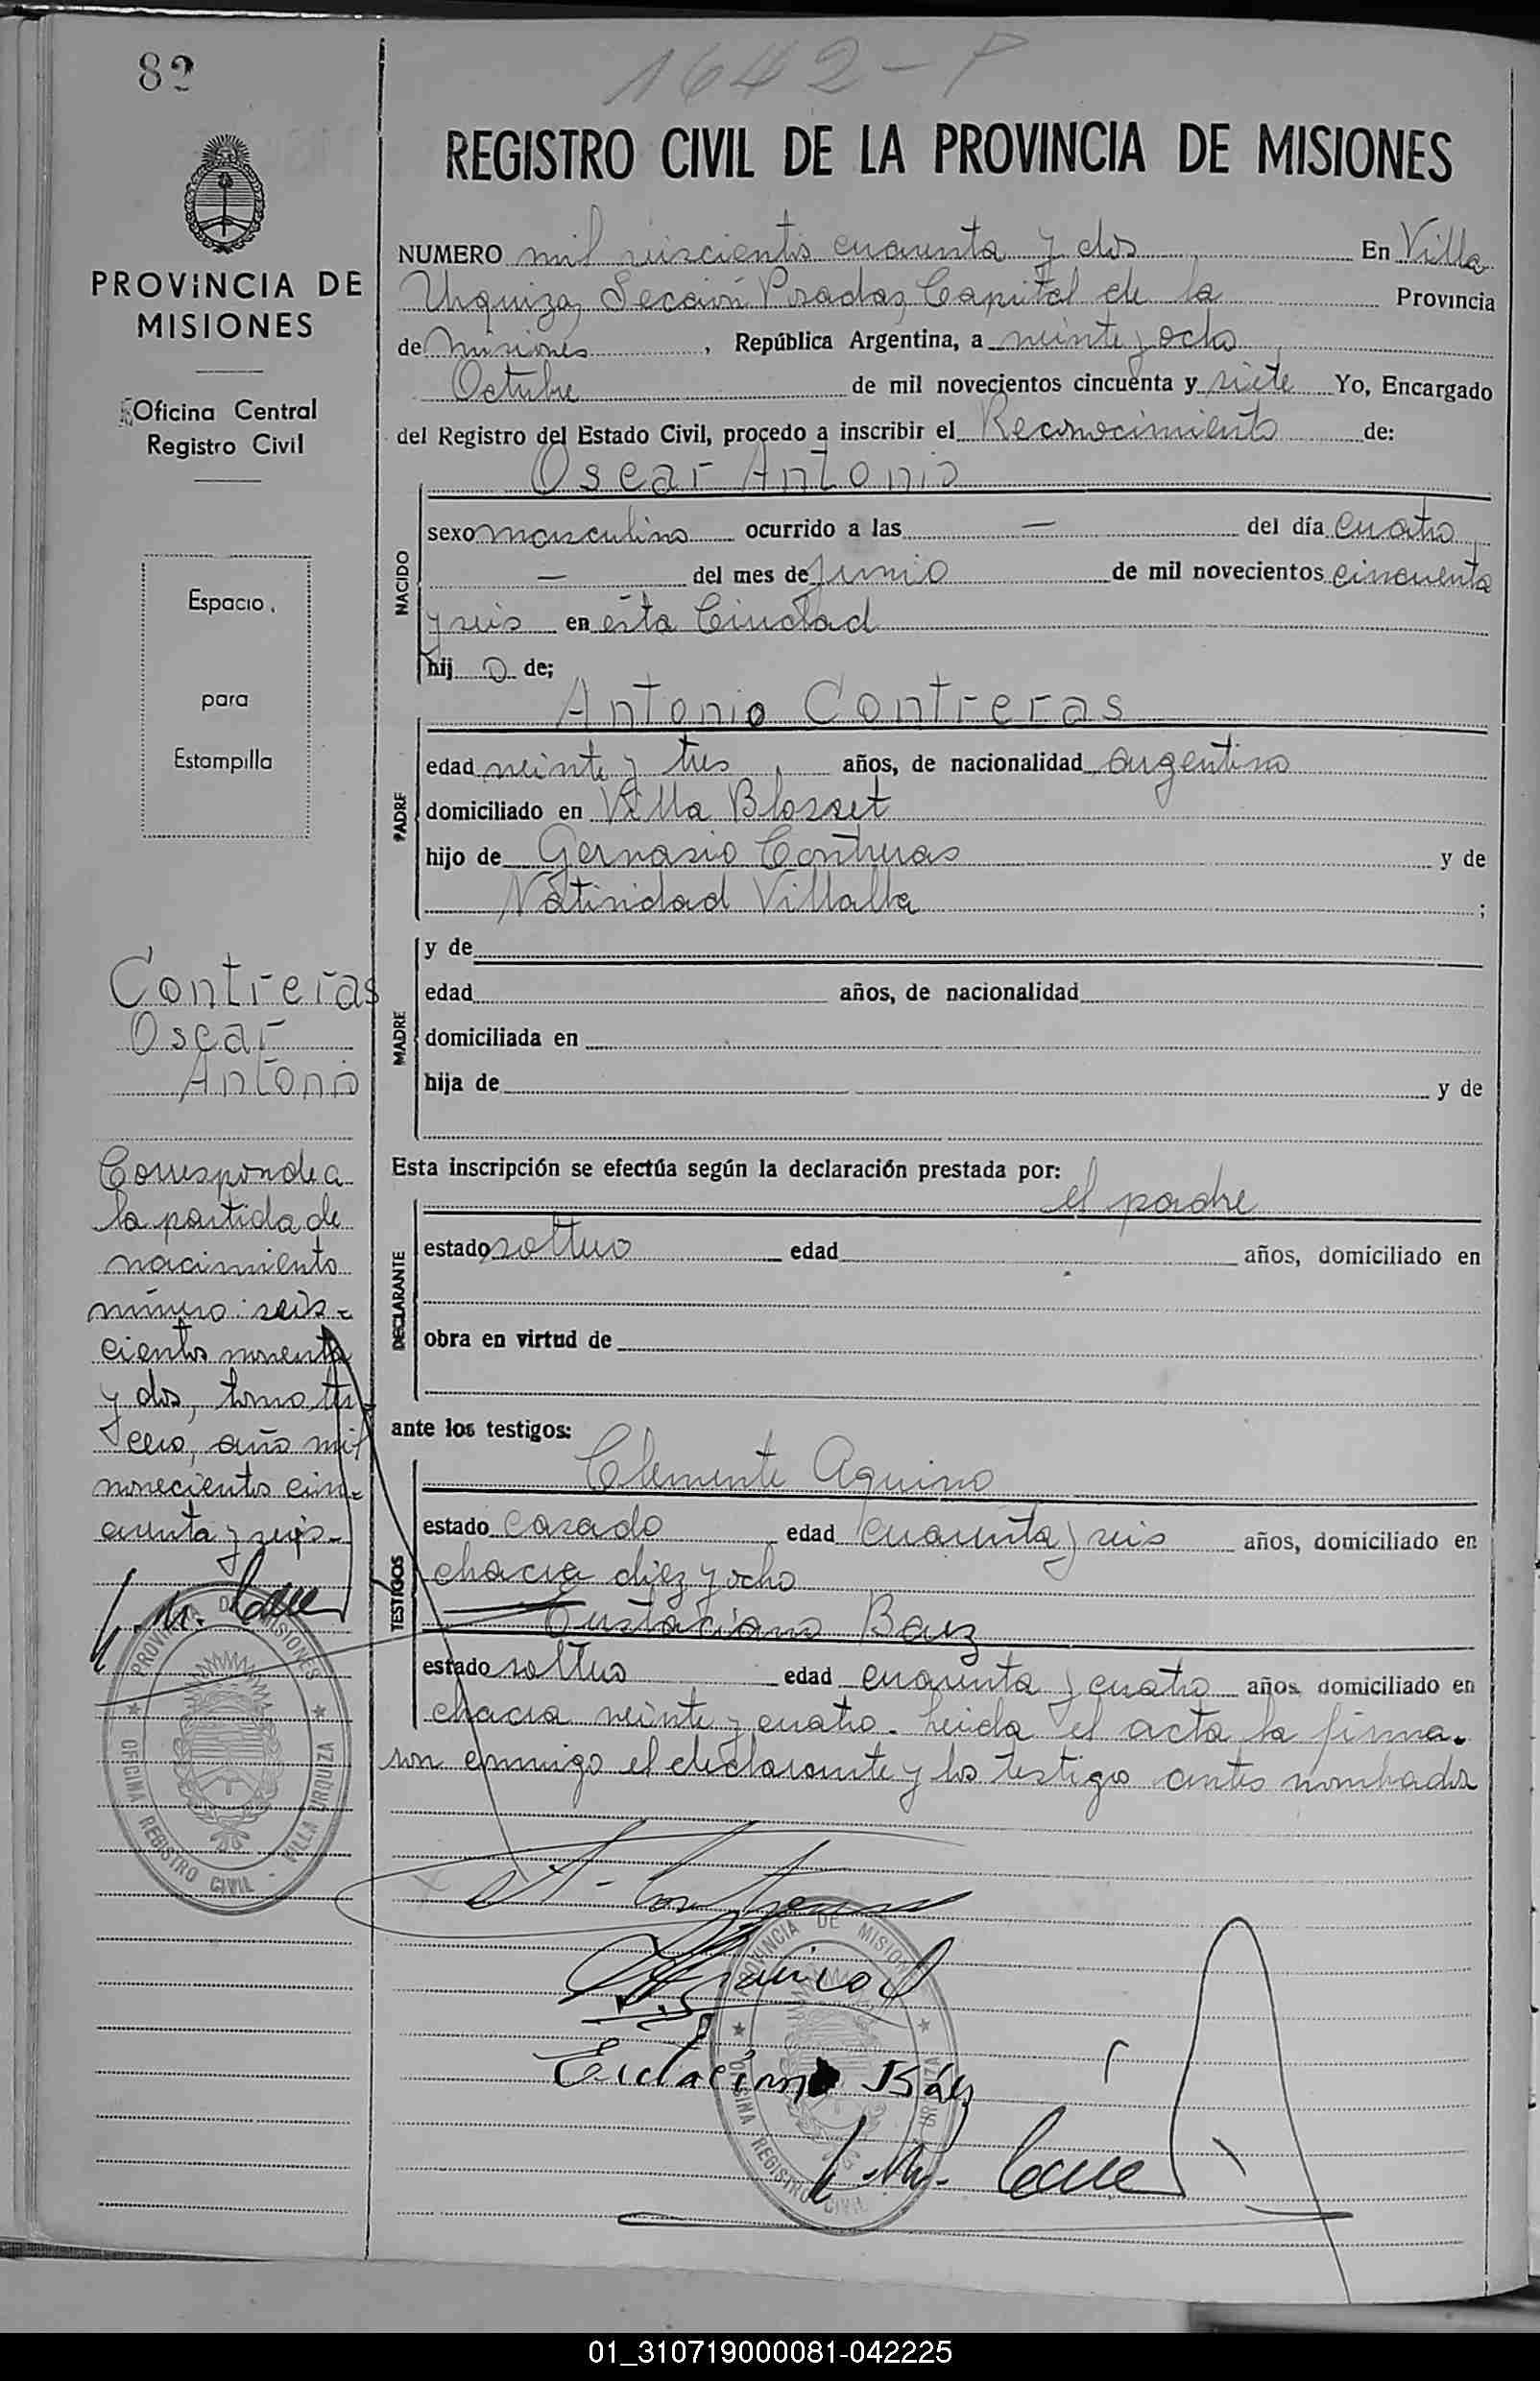 82
1642-P
PROVINCIA DE
MISIONES
Oficina Central
Registro Civil
Espacio
para
Estampilla
Contreras
Oscar
Antonio
Corresponde a
la partida de
nacimiento
número seis-
cientos noventa
y dos, tomo ter
cero, año mil
novecientos cin-
cuenta y seis-
PROVINCIA DE MISIONES
OFICINA REGISTRO CIVIL - VILLA URQUIZA
REGISTRO CIVIL DE LA PROVINCIA DE MISIONES
NUMERO mil seiscientos cuarenta y dos En Villa
Urquiza, Sección Posadas, Capital de la Provincia
de Misiones, República Argentina, a veinte y ocho
Octubre de mil novecientos cincuenta y siete Yo, Encargado
del Registro del Estado Civil, procedo a inscribir el Reconocimiento de:
Oscar Antonio
NACIDO
sexo masculino ocurrido a las — del día cuatro
— del mes de Junio de mil novecientos cincuenta
y seis en ésta Ciudad
hij o de;
Antonio Contreras
PADRE
edad veinte y tres años, de nacionalidad argentino
domiciliado en Villa Blosset
hijo de Gervasio Contreras y de
Natividad Villalba ;
MADRE
y de
edad años, de nacionalidad
domiciliada en
hija de y de
Esta inscripción se efectúa según la declaración prestada por:
el padre
DECLARANTE
estado soltero edad años, domiciliado en
obra en virtud de
ante los testigos:
Clemente Aquino
TESTIGOS
estado casado edad cuarenta y seis años, domiciliado en
chacra diez y ocho
Eustaciano Baez
estado soltero edad cuarenta y cuatro años domiciliado en
chacra veinte y cuatro. Leida el acta la firma.
ron conmigo el declarante y los testigos antes nombrados
Báez
PROVINCIA DE MISIONES
OFICINA REGISTRO CIVIL URQUIZA
01_310719000081-042225